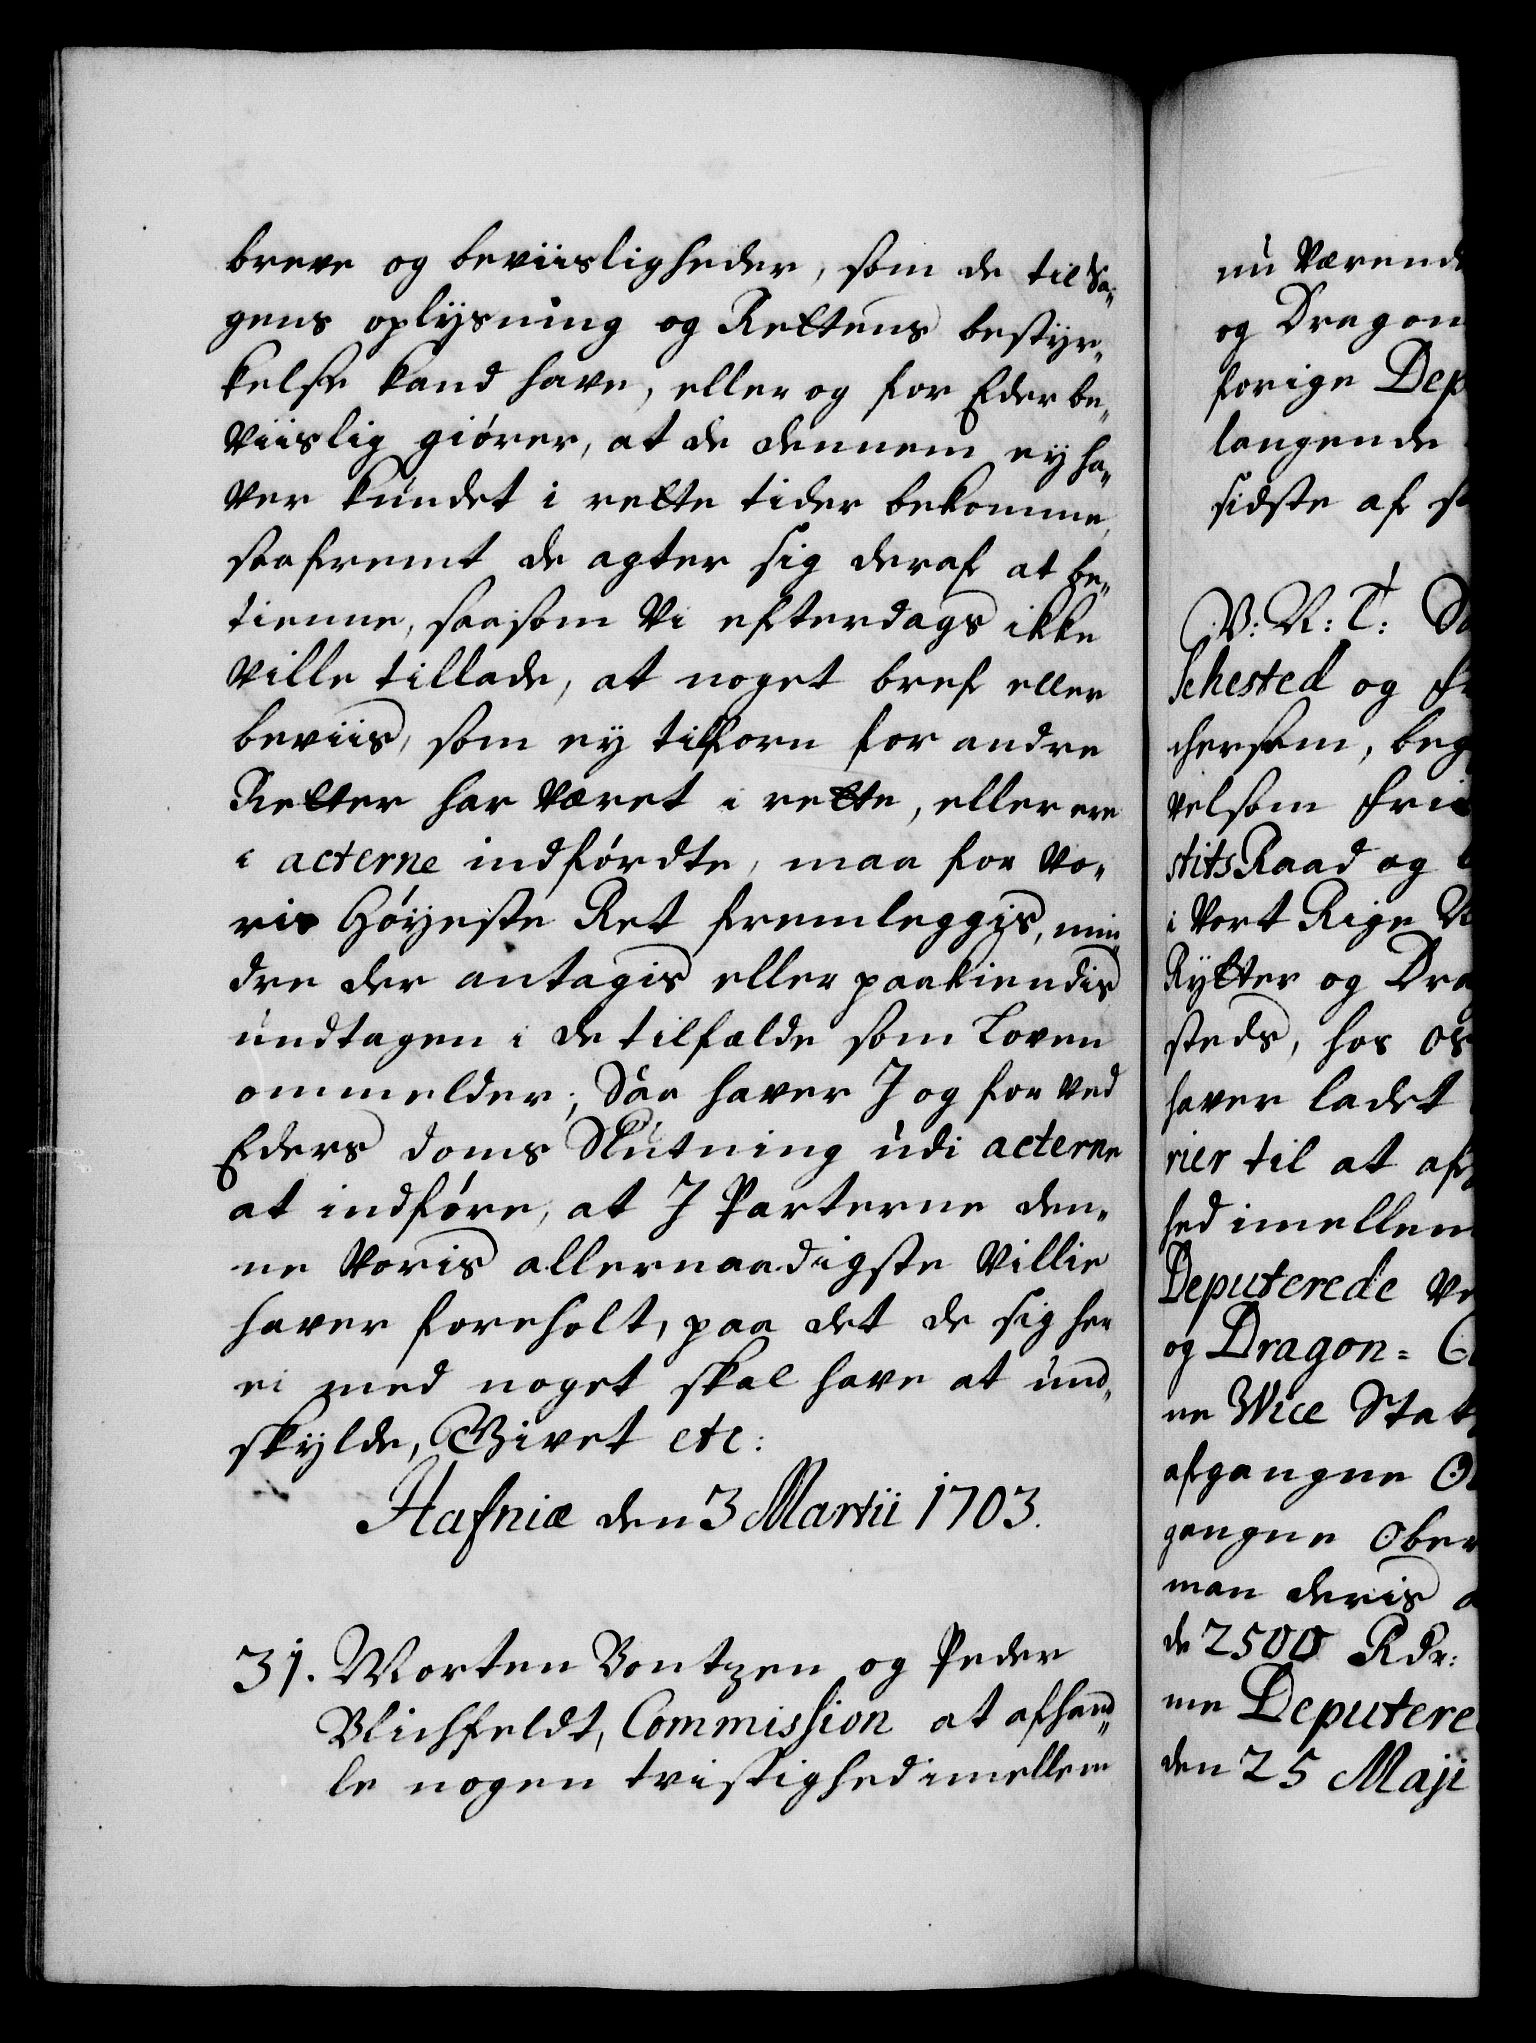 breve og beviisligheder, som de til Sa-
gens oplysning og Rettens bestyr-
kelse kand have, eller og for Eder be-
viislig giører, at de dennem ey ha-
ver kundet i rette tider bekomme,
saafremt de agter sig deraf at be-
tienne, saasom Vi efterdags ikke
Ville tillade, at noget bref eller
beviis, som ey tilforn for andre
Retter har Været i rette, eller ere
i acterne indførdte, maa for Vo-
ris Høyeste Ret fremleggis, min-
dre der antagis eller paakiendis
undtagen i de tilfælde som Loven
ommelder; Saa haver I og for ved
Eders doms Slutning udi acterne
at indføre, at I Parterne den-
ne Voris allernaadigste Villie
haver foreholt, paa det de sig her
ei med noget skal have at und-
skylde, Givet etc:
Hafniæ den 3 Martii 1703.
31. Morten Bontzen og Peder
Blichfeldt, Commission at afhand-
le nogen tvistighed imellem
nu Værend
og Dragon
forige Dep
langende
sidste af
V: N: T:
Sehested og
chersom, beg
velsom Fri
stits Raad og
i Vort Rige N
Rytter og Dra
steds, hos os
haver ladet
rier til at af
hed imellem
Deputerede Ve
og Dragon=
ne Wice Stat
afgangne
gangne Ober
man deris
de 2500 Rdr:
me Deputere
den 25 Maji